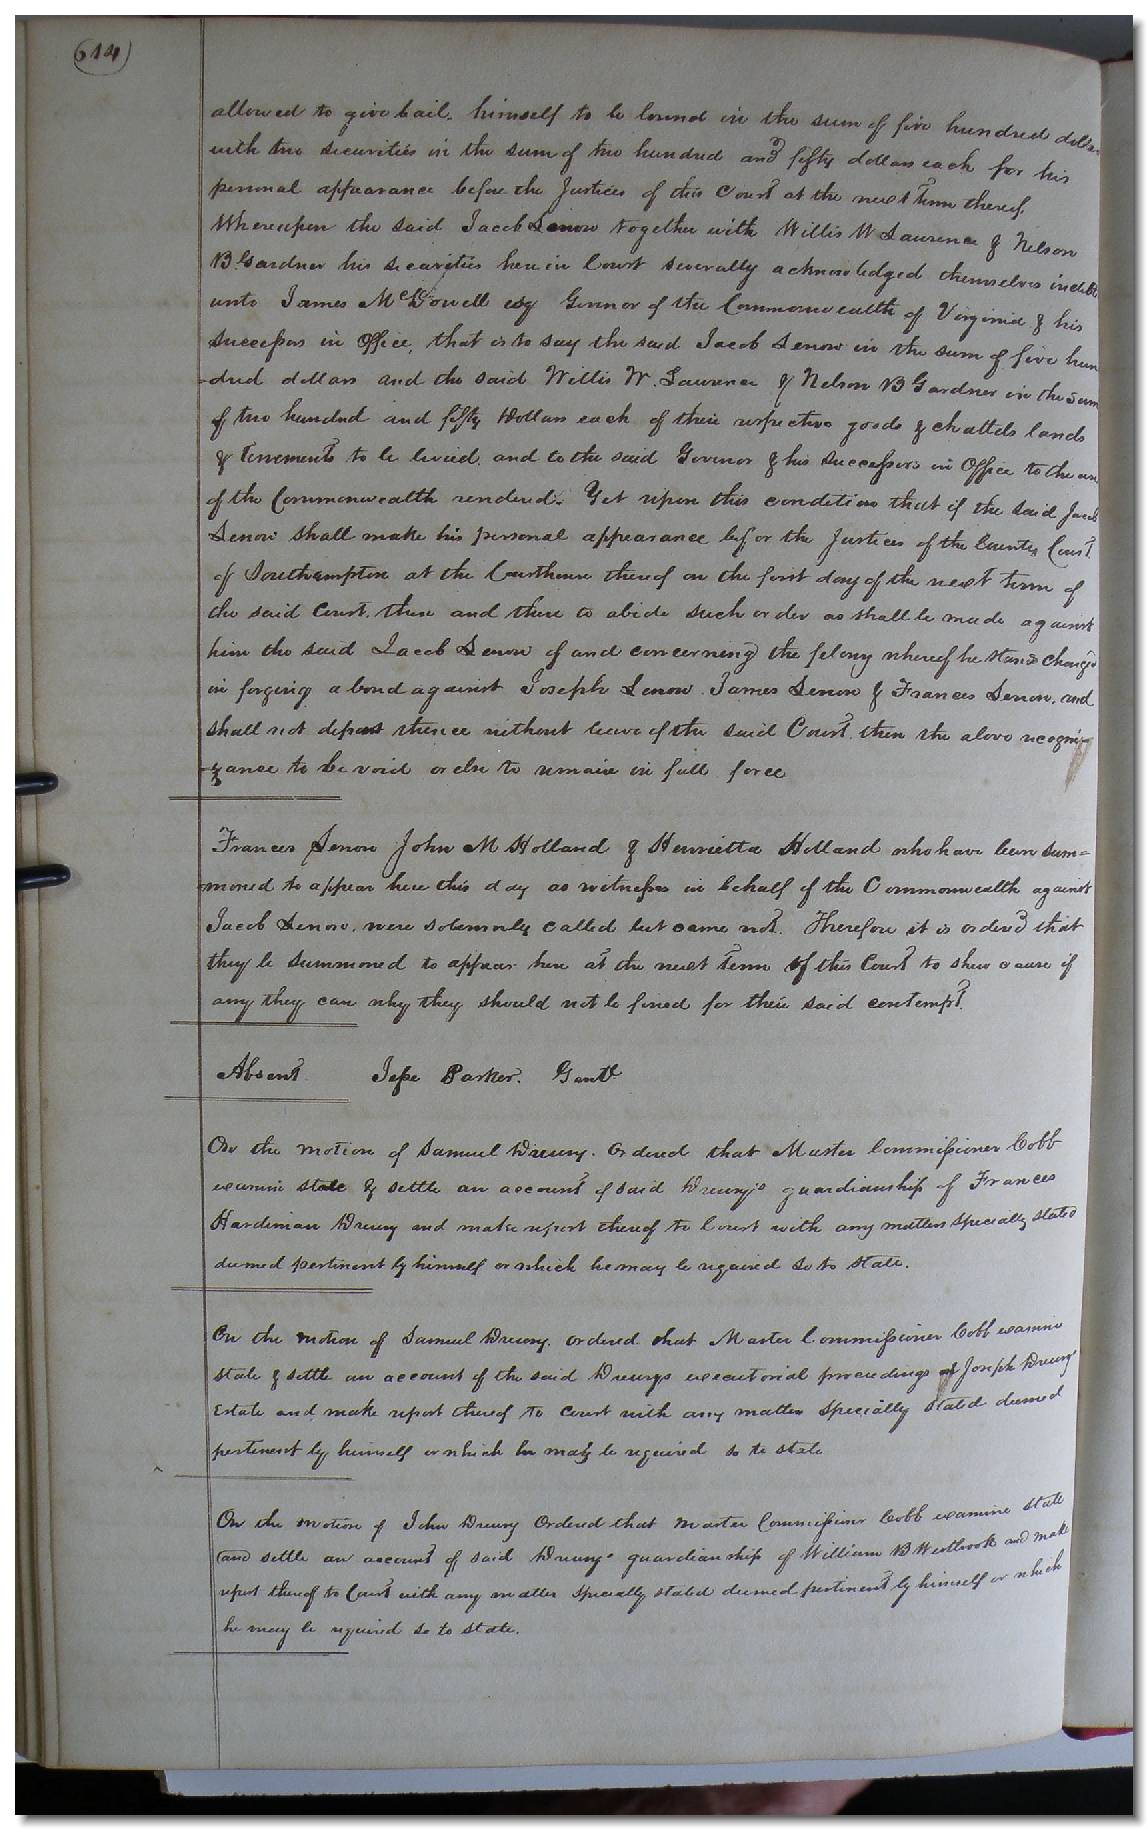 614
allowed to give bail. himself to be bound in the sum of five hundred dollars
with two securities in the sum of two hundred and fifty dollars each for his
personal appearance before the Justices of this Court at the next Term thereof.
Whereupon the said Jacob Lenow together with Willis W Laurence & Nelson
B Gardner his securities here in Court severally acknowledged themselves indebt
unto James McDowell esq Govenor of the Commonwealth of Virginia & his
successors in Office, that is to say the said Jacob Lenow in the sum of five hun
-dred dollars and the said Willis W. Laurence & Nelson B Gardner in the sum
of two hundred and fifty Dollars each of their respective goods & chattels lands
& Tenements to be levied. and to the said Govenor & his successors in Office to the use
of the Commonwealth rendered. Yet upon this condition that if the said Jacob
Lenow shall make his personal appearance before the Justices of the County Court
of Southampton at the Courthouse thereof on the first day of the next term of
the said Court. then and there to abide such order as shall be made against
him the said Jacob Lenow of and concerning the felony whereof he stands charged
in forging a bond against Joseph Lenow. James Lenow & Frances Lenow. and
shall not depart thence without leave of the said Court. then the above recogni-
-zance to be void or else to remain in full force
Frances Lenow John M Holland & Henrietta Holland who have been sum=
moned to appear here this day as witnesses in behalf of the Commonwealth against
Jacob Lenow. were solemnly called but came not. Therefore it is ordered that
they be summoned to appear here at the next Term of this Court to shew cause if
any they can why they should not be fined for their said contempt.
Absent Jesse Parker. Gent
On the motion of Samuel Drewry. Ordered that Master Commissioner Cobb
examine state & settle an account of said Drewry's guardianship of Frances
Hardiman Drewry and make report thereof to Court with any matters specially stated
deemed pertinent by himself or which he may be required so to state.
On the motion of Samuel Drewry. ordered that Master Commissioner Cobb examine
state & settle an account of the said Drewrys executorial proceedings of Joseph Drewrys
Estate and make report thereof to Court with any matters specially stated deemed
pertinent by himself or which he may be required so to state
On the motion of John Drewry Ordered that Master Commissioner Cobb examine state
and settle an account of said Drewry's guardianship of William B Westbrook and make
report thereof to Court with any matter specially stated deemed pertinent by himself or which
he may be required so to state.